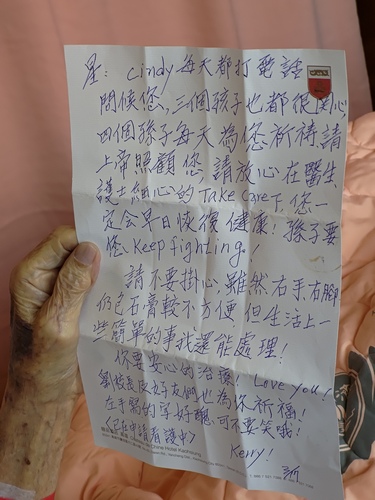 星: cindy每天都打電話
問候您,三個孩子也都很關心,
四個孫子每天為您祈禱請
上帝照顧您,請放心在醫生
護士細心的Take care下您一
定會早日恢復健康!孫子要
您keep fighting!
請不要掛心,雖然右手,右腳
仍包石膏較不方便,但生活上一
些簡單的事我還能處理!
你要安心的治療! Love you!
劉牧長及女友們也為你祈福!
左手寫的字好醜,可不要笑哦!
(已在申請看護中)
Kerry!